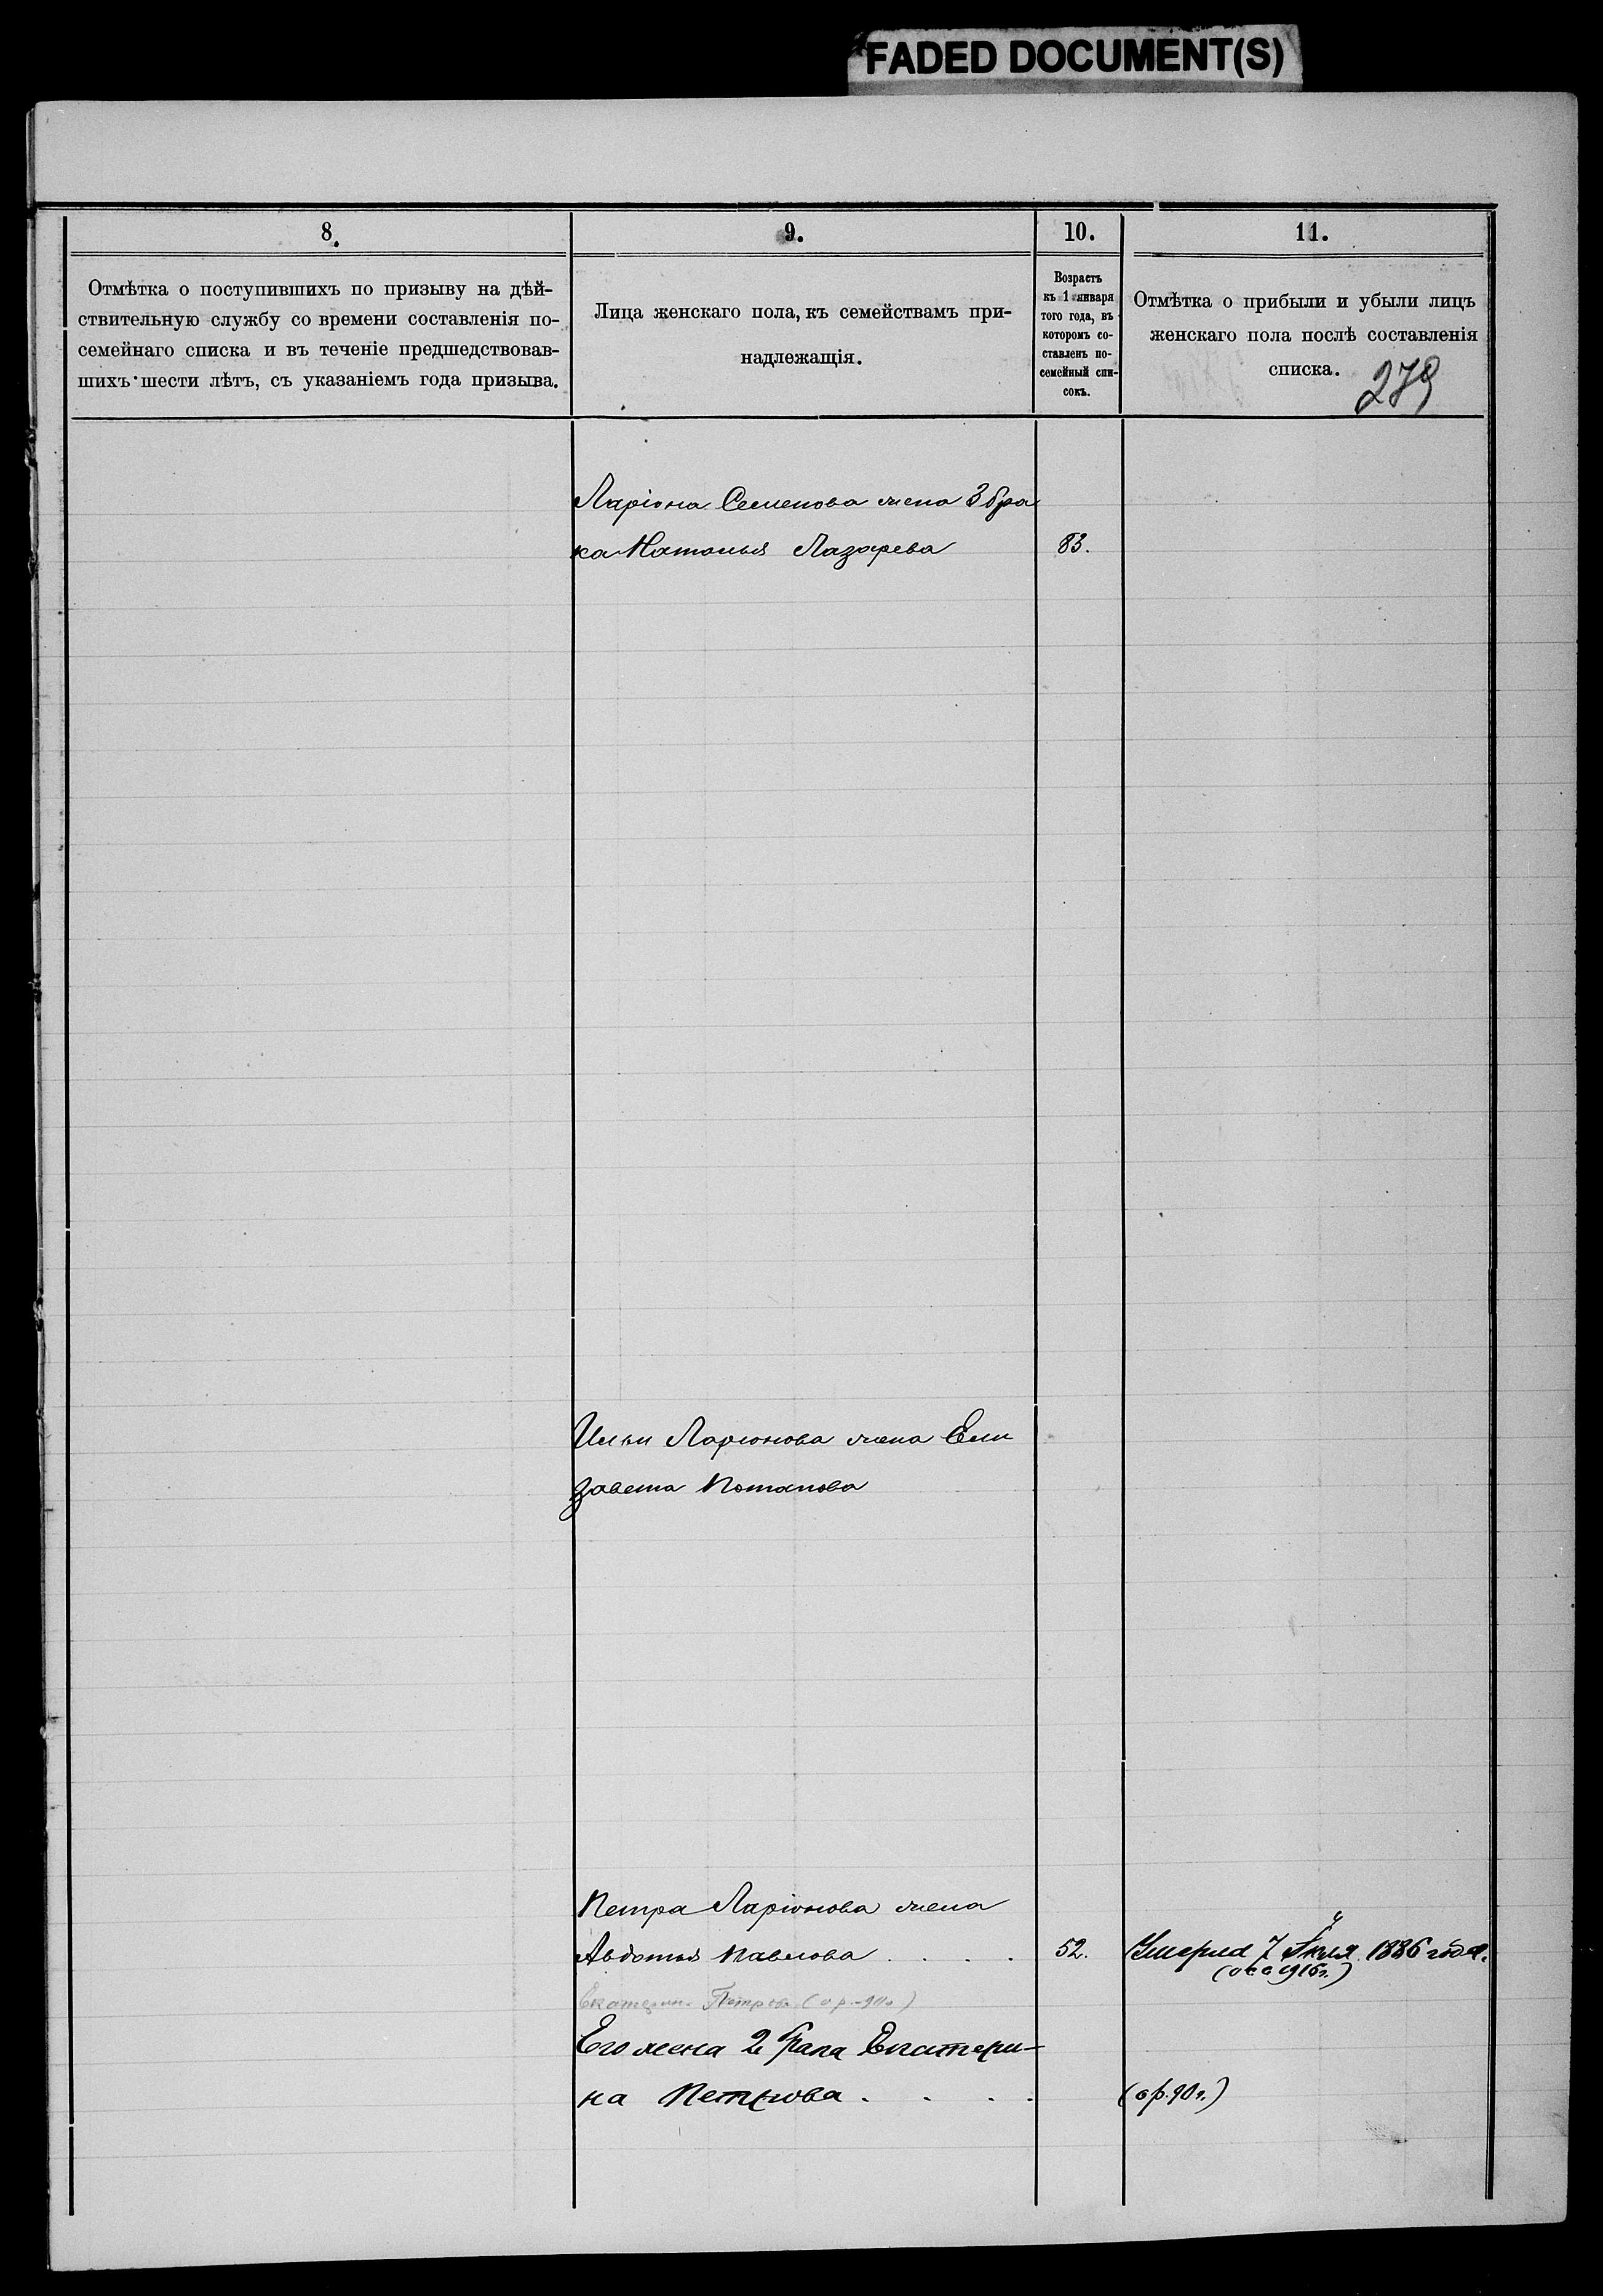 FADED DOCUMENT(S)
8.
9.
10.
11.
Отмѣтка о поступившихъ по призыву на дѣй-
ствительную службу со времени составленія по-
семейнаго списка и въ теченіе предшедствовав-
шихъ шести лѣтъ, съ указаніемъ года призыва.
Лица женскаго пола, къ семействамъ при-
надлежащія.
Возрастъ
къ 1 января
того года, въ
которомъ со-
ставленъ по-
семейный спи-
сокъ.
Отмѣтка о прибыли и убыли лицъ
женскаго пола послѣ составленія
списка.
279
Ларіона Семенова жена 3 бра
ка Наталья Лазарева 83.
Ильи Ларионова жена Ели
завета Потапова
Петра Ларіонова жена
Авдотья Павлова . . . . 52. Умерла 7 Іюля 1886 года.
1916г.)
Екатерина Петрова
Его жена 2 брака Екатери-
на Петрова . . . . (ор. 90 г.)